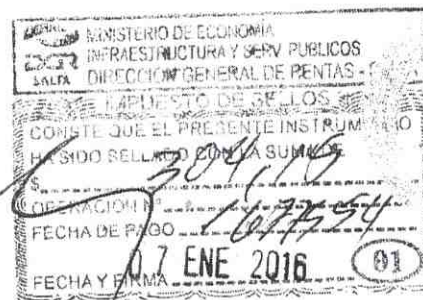 MINISTERIO DE ECONOMIA
INFRAESTRUCTURA Y SERV. PUBLICOS
DGR
SALTA
DIRECCION GENERAL DE RENTAS -
IMPUESTO DE SELLOS
CONSTE QUE EL PRESENTE INSTRUM
HA SIDO SELLADO CON LA SUMA DE
$
OPERACION Nº
FECHA DE PAGO
07 ENE 2016
FECHA Y FIRMA
01